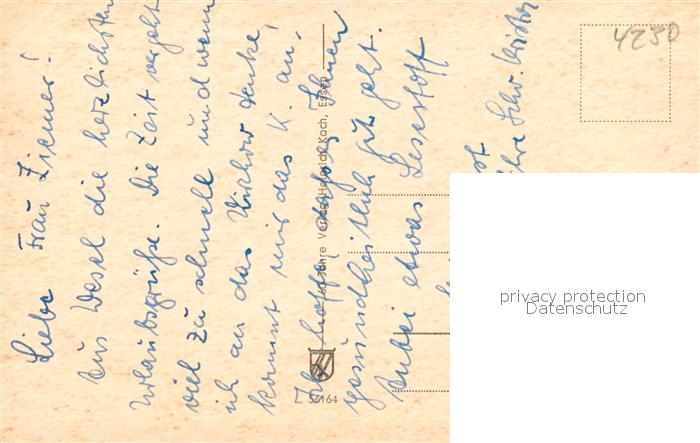 Liebe Frau Ziemer!
Aus Wesel die herzlichsten
Urlaubsgrüße. Die Zeit vergeht
viel zu schnell und wenn
ich an das denke,
kommt mir das K. an.
Ich hoffe, es Ihnen
gesundheitlich gut geht.
Anbei etwas Lesestoff
Ihre Schw.
4230
Jahre Verlag Heinrich Koch, Essen
56164
privacy protection
Datenschutz